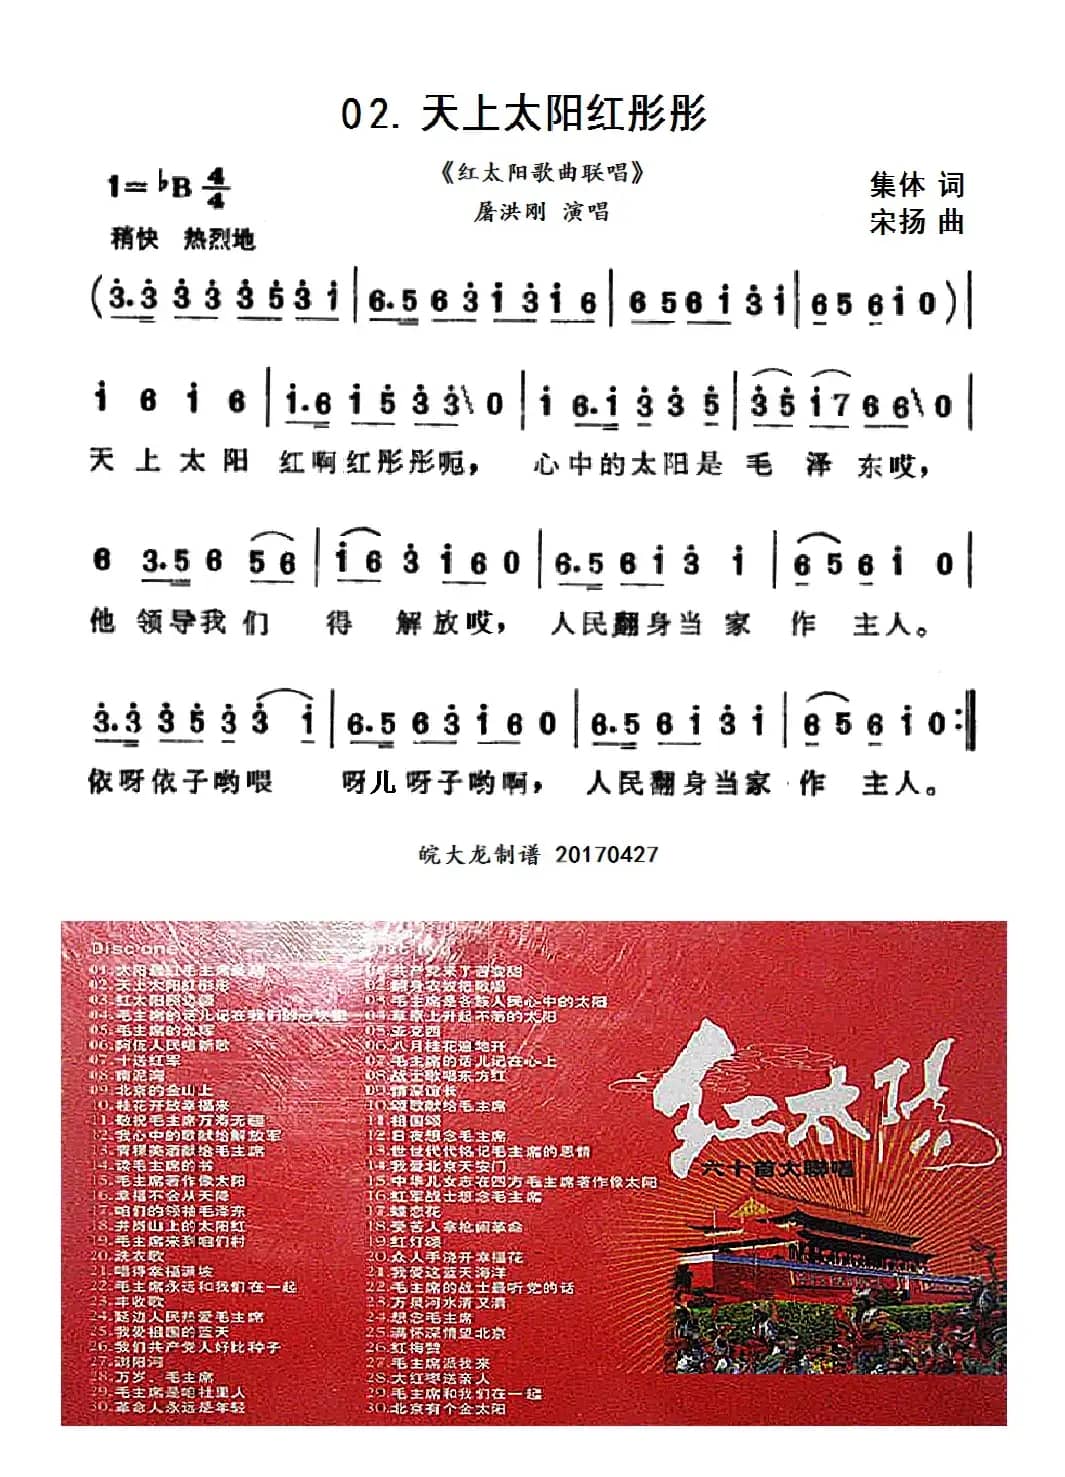 02. 天上太阳红彤彤
《红太阳歌曲联唱》
屠洪刚 演唱
集体 词
宋扬 曲
1=♭B 4/4
稍快 热烈地
(3̇.3̇ 3̇ 3̇ 3̇ 5̇ 3̇ 1̇ | 6.5 6 3̇ 1̇ 3̇ 1̇ 6 | 6 5 6 1̇ 3̇ 1̇ | 6 5 6 1̇ 0 ) |
1̇ 6 1̇ 6 | 1̇.6 1̇ 5̇ 3̇ 3̇\ 0 | 1̇ 6.1̇ 3̇ 3̇ 5̇ | 3̇ 5̇ 1̇ 7 6 6\ 0 |
天上太阳 红啊红彤彤呃， 心中的太阳是毛泽东哎，
6 3.5 6 5 6 | 1̇ 6 3̇ 1̇ 6 0 | 6.5 6 1̇ 3̇ 1̇ | 6 5 6 1̇ 0 |
他领导我们 得解放哎， 人民翻身当家作主人。
3̇.3̇ 3̇ 5̇ 3̇ 3̇ 1̇ | 6.5 6 3̇ 1̇ 6 0 | 6.5 6 1̇ 3̇ 1̇ | 6 5 6 1̇ 0 :‖
依呀依子哟喂 呀儿呀子哟啊， 人民翻身当家作主人。
皖大龙制谱 20170427
Disc one
02.天上太阳红彤彤
03.红太阳照边疆
05.毛主席的光辉
06.阿佤人民唱新歌
07.十送红军
08.南泥湾
09.北京的金山上
10.桂花开放幸福来
11.敬祝毛主席万寿无疆
12.我心中的歌献给解放军
13.青稞美酒献给毛主席
14.读毛主席的书
15.毛主席著作像太阳
16.幸福不会从天降
17.咱们的领袖毛泽东
18.井岗山上的太阳红
19.毛主席来到咱们村
20.洗衣歌
21.唱得幸福满坡
22.毛主席永远和我们在一起
23.丰收歌
24.延边人民热爱毛主席
25.我爱祖国的蓝天
26.我们共产党人好比种子
27.浏阳河
28.万岁、毛主席
29.毛主席是咱社里人
30.革命人永远是年轻
01.共产党来了苦变甜
02.翻身农奴把歌唱
03.毛主席是各族人民心中的太阳
04.草原上升起不落的太阳
05.亚克西
06.八月桂花遍地开
07.毛主席的话儿记在心上
08.战士歌唱东方红
09.情深谊长
10.颂歌献给毛主席
11.祖国颂
12.日夜想念毛主席
13.世世代代铭记毛主席的恩情
14.我爱北京天安门
15.中华儿女志在四方毛主席著作像太阳
16.红军战士想念毛主席
17.蝶恋花
18.受苦人拿抢闹革命
19.红灯颂
20.众人手浇开幸福花
21.我爱这蓝天海洋
22.毛主席的战士最听党的话
23.万泉河水清又清
24.想念毛主席
25.满怀深情望北京
26.红梅赞
27.毛主席派我来
28.大红枣送亲人
29.毛主席和我们在一起
30.北京有个金太阳
红太阳
六十首大聯唱